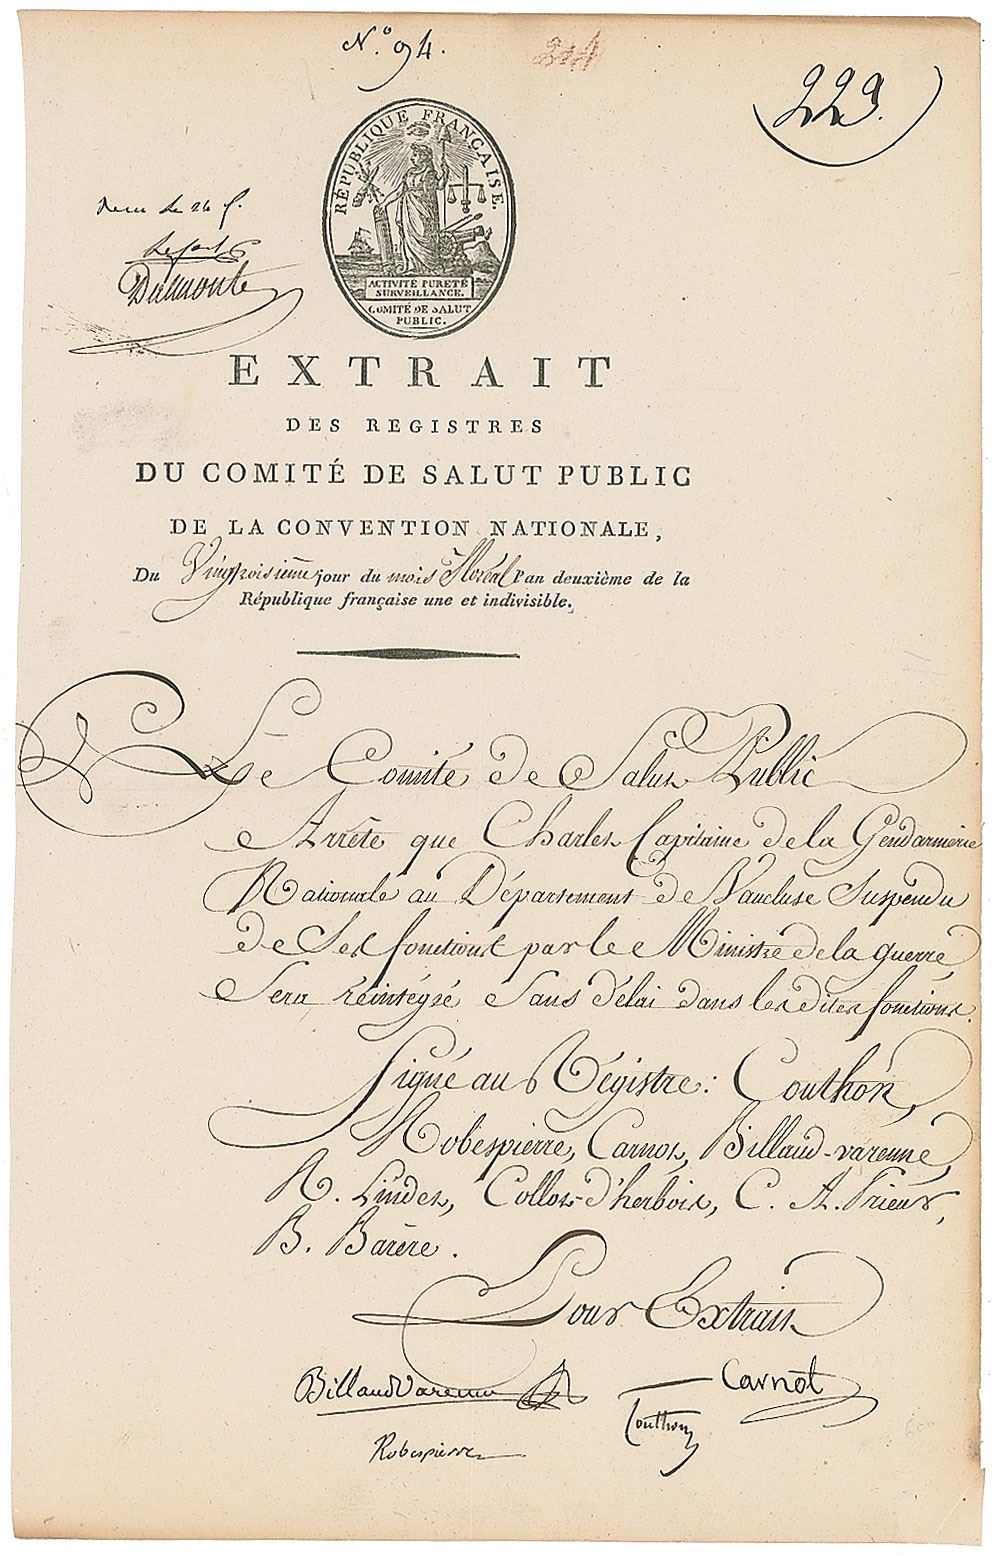 N.° 94.
214
229.
RÉPUBLIQUE FRANÇAISE.
le 26 f.
Dumonte
ACTIVITÉ PURETÉ
SURVEILLANCE.
COMITÉ DE SALUT
PUBLIC.
EXTRAIT
DES REGISTRES
DU COMITÉ DE SALUT PUBLIC
DE LA CONVENTION NATIONALE,
Du Vingtroisième jour du mois Floréal l'an deuxième de la
République française une et indivisible.
Le Comité de Salut Public
Arrête que Charles Capitaine de la Gendarmerie
Nationale au Département de Vaucluse Suspendu
de Ses fonctions par le Ministre de la guerre,
Sera réintégré Sans délai dans les dites fonctions.
Signé au Régistre : Couthon,
Robespierre, Carnot, Billaud-varenne,
R. Lindet, Collot-d'herbois, C. A. Prieur,
B. Barère.
Pour Extrait
Billaud Varenne Carnot
Couthon
Robespierre